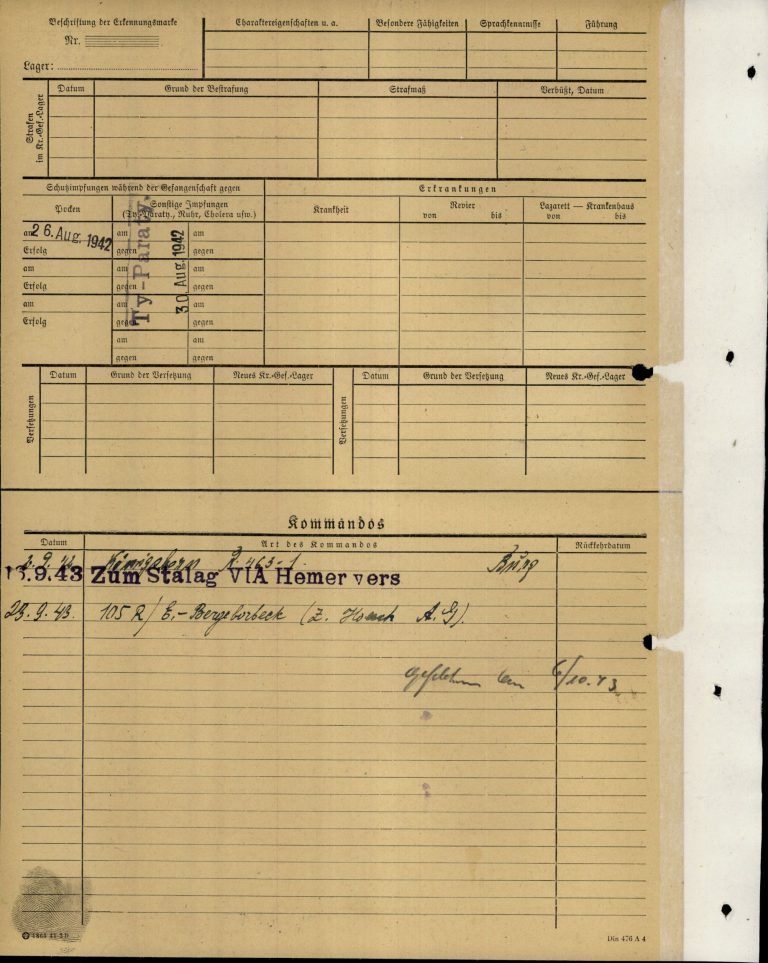 Beschriftung der Erkennungsmarke
Nr.
Lager:
Charaktereigenschaften u. a.
Besondere Fähigkeiten
Sprachkenntnisse
Führung
Strafen im Kr.-Gef.-Lager
Datum
Grund der Bestrafung
Strafmaß
Verbüßt, Datum
Schutzimpfungen während der Gefangenschaft gegen
Erkrankungen
Pocken
Sonstige Impfungen
(Ty.-Paraty., Ruhr, Cholera usw.)
Krankheit
Revier
von bis
Lazarett — Krankenhaus
von bis
am 26. Aug. 1942
Erfolg
am
Erfolg
am
Erfolg
am am
gegen gegen
am am
gegen gegen
am am
gegen gegen
am am
gegen gegen
Ty-Paraty.
30. Aug. 1942
Versetzungen
Datum
Grund der Versetzung
Neues Kr.-Gef.-Lager
Versetzungen
Datum
Grund der Versetzung
Neues Kr.-Gef.-Lager
Kommandos
Datum
Art des Kommandos
Rückkehrdatum
9. 42 R. 463-1 Burg
9.43 Zum Stalag VIA Hemer vers
23. 9. 43. 105 R/ E.-Bergeborbeck (Z. A. G).
10. 43
Din 476 A 4